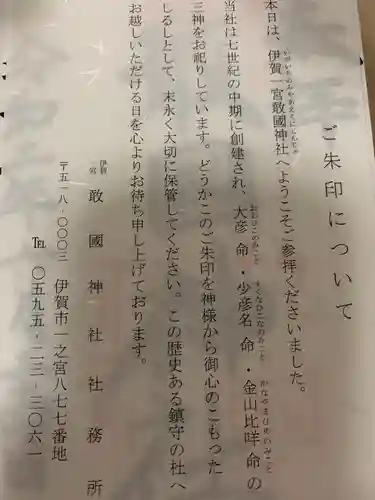 ご朱印について
本日は、伊賀一宮敢國神社へようこそご参拝くださいました。
当社は七世紀の中期に創建され、大彦命・少彦名命・金山比咩命の
三神をお祀りしています。どうかこのご朱印を神様から御心のこもった
しるしとして、末永く大切に保管してください。この歴史ある鎮守の杜へ
お越しいただける日を心よりお待ち申し上げております。
〒五一八-〇〇〇三　伊賀市一之宮八七七番地
伊賀一宮 敢國神社社務所
℡ 〇五九五-二三-三〇六一